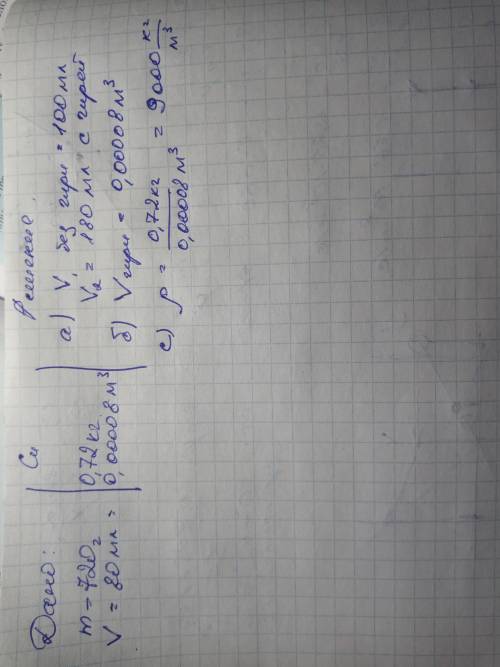 Дано:
m = 720г
V = 80 мл =
Си
0,72 кг
0,00008 м³
Решение.
а) V₁ без гири = 100 мл
V₂ = 180 мл с гирей
б) V гири = 0,00008 м³
с) ρ = 0,72 кг / 0,00008 м³ = 9000 кг/м³